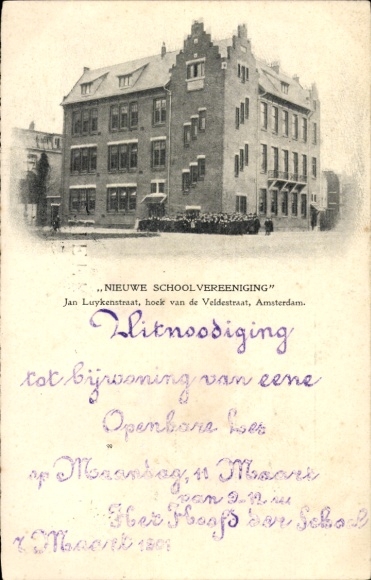 „NIEUWE SCHOOLVEREENIGING”
Jan Luykenstraat, hoek van de Veldestraat, Amsterdam.
Uitnoodiging
tot bijwoning van eene
Openbare Les
op Maandag, 11 Maart
van 9-12 u
Het Hoofd der School
Maart 1901